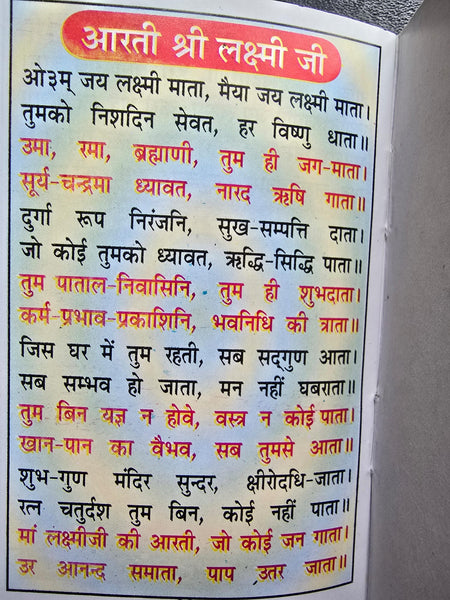 आरती श्री लक्ष्मी जी
ओ३म् जय लक्ष्मी माता, मैया जय लक्ष्मी माता।
तुमको निशदिन सेवत, हर विष्णु धाता॥
उमा, रमा, ब्रह्माणी, तुम ही जग-माता।
सूर्य-चन्द्रमा ध्यावत, नारद ऋषि गाता॥
दुर्गा रूप निरंजनि, सुख-सम्पत्ति दाता।
जो कोई तुमको ध्यावत, ऋद्धि-सिद्धि पाता॥
तुम पाताल-निवासिनि, तुम ही शुभदाता।
कर्म-प्रभाव-प्रकाशिनि, भवनिधि की त्राता॥
जिस घर में तुम रहती, सब सद्‌गुण आता।
सब सम्भव हो जाता, मन नहीं घबराता॥
तुम बिन यज्ञ न होवे, वस्त्र न कोई पाता।
खान-पान का वैभव, सब तुमसे आता॥
शुभ-गुण मंदिर सुन्दर, क्षीरोदधि-जाता।
रत्न चतुर्दश तुम बिन, कोई नहीं पाता॥
मां लक्ष्मीजी की आरती, जो कोई जन गाता।
उर आनन्द समाता, पाप उतर जाता॥